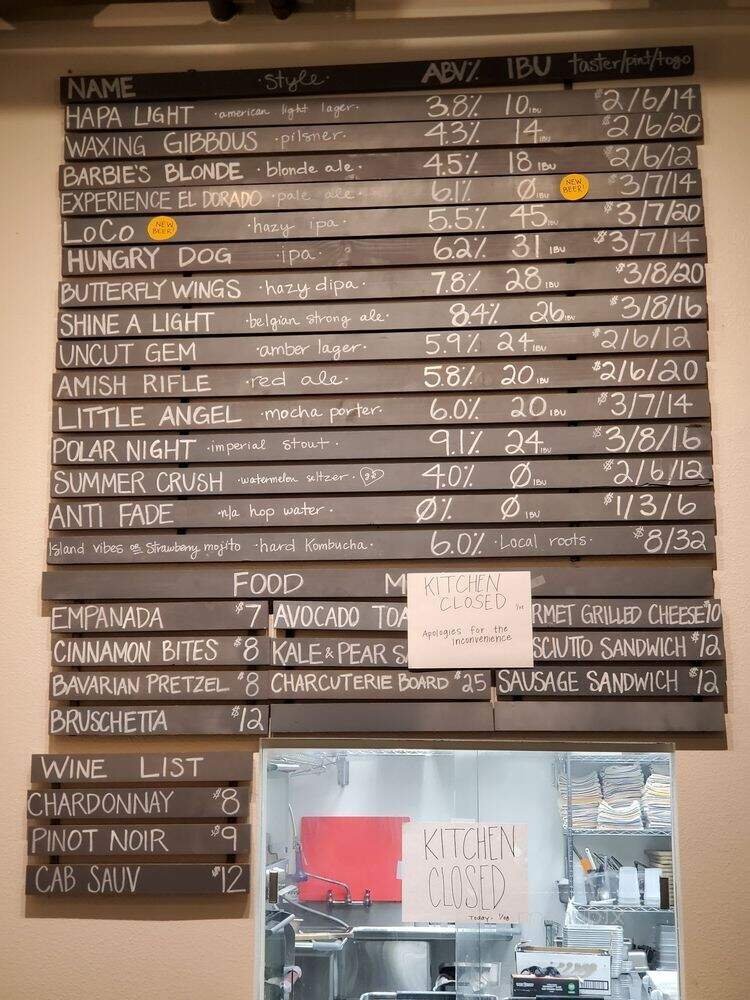 NAME ·style· ABV% IBU taster/pint/togo
HAPA LIGHT ·american light lager· 3.8% 10 IBU $2/6/14
WAXING GIBBOUS ·pilsner· 4.3% 14 IBU $2/6/20
BARBIE'S BLONDE ·blonde ale· 4.5% 18 IBU $2/6/12
EXPERIENCE EL DORADO ·pale ale· 6.1% Ø IBU NEW BEER! $3/7/14
LoCo NEW BEER! ·hazy ipa· 5.5% 45 IBU $3/7/20
HUNGRY DOG ·ipa· 6.2% 31 IBU $3/7/14
BUTTERFLY WINGS ·hazy dipa· 7.8% 28 IBU $3/8/20
SHINE A LIGHT ·belgian strong ale· 8.4% 26 IBU $3/8/16
UNCUT GEM ·amber lager· 5.9% 24 IBU $2/6/12
AMISH RIFLE ·red ale· 5.8% 20 IBU $2/6/20
LITTLE ANGEL ·mocha porter· 6.0% 20 IBU $3/7/14
POLAR NIGHT ·imperial stout· 9.1% 24 IBU $3/8/16
SUMMER CRUSH ·watermelon seltzer· 4.0% Ø IBU $2/6/12
ANTI FADE ·n/a hop water· Ø% Ø IBU $1/3/6
Island vibes or Strawberry mojito ·hard Kombucha· 6.0% ·Local roots· $8/32
FOOD M
KITCHEN
CLOSED 1/08
Apologies for the
inconvenience
EMPANADA $7 AVOCADO TOA RMET GRILLED CHEESE $10
CINNAMON BITES $8 KALE & PEAR S SCIUTTO SANDWICH $12
BAVARIAN PRETZEL $8 CHARCUTERIE BOARD $25 SAUSAGE SANDWICH $12
BRUSCHETTA $12
WINE LIST
CHARDONNAY $8
PINOT NOIR $9
CAB SAUV $12
KITCHEN
CLOSED
Today· 1/08